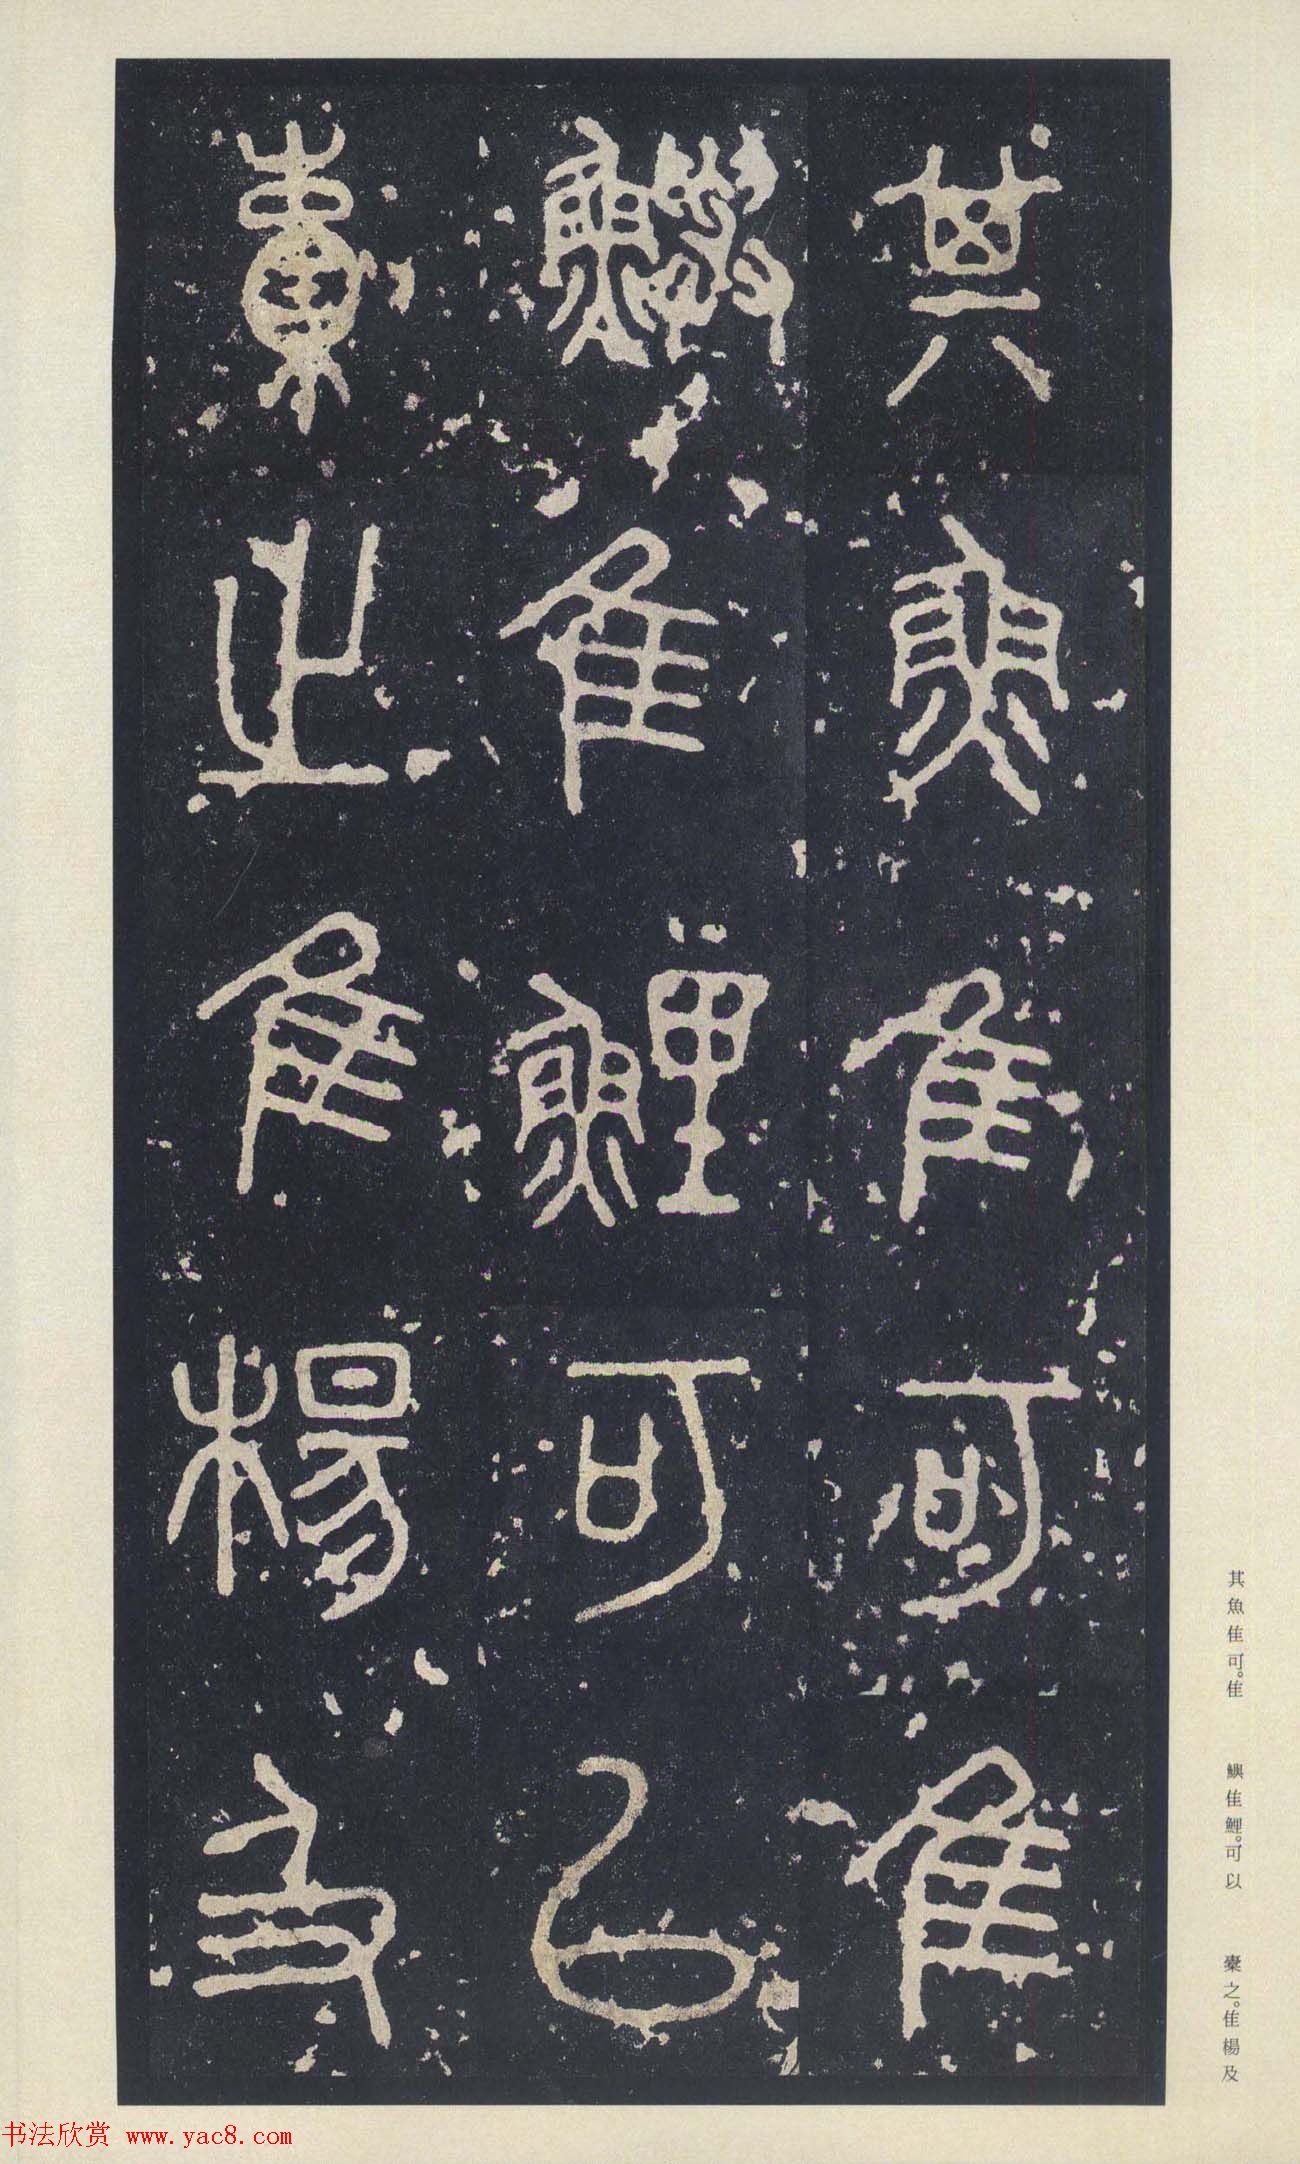 其魚隹可隹
鱮隹鯉可以
橐之隹楊及
其魚隹可。隹　鱮隹鯉。可以　橐之。隹楊及
书法欣赏 www.yac8.com